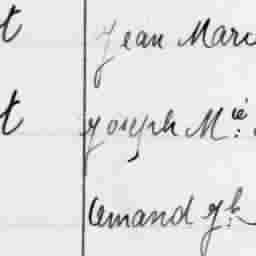 t Jean Marc
t Joseph M.ié
Armand J.h